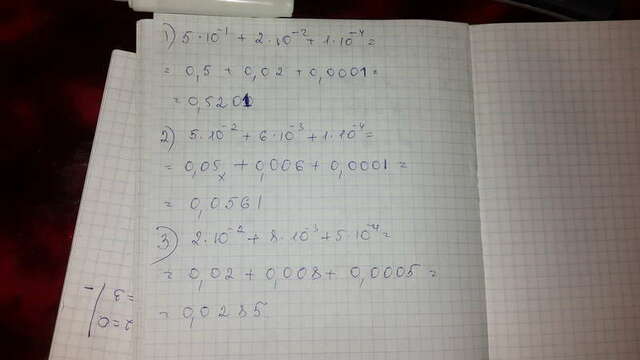 1) 5·10⁻¹ + 2·10⁻² + 1·10⁻⁴ =
= 0,5 + 0,02 + 0,0001 =
= 0,5201
2) 5·10⁻² + 6·10⁻³ + 1·10⁻⁴ =
= 0,05 + 0,006 + 0,0001 =
= 0,0561
3) 2·10⁻² + 8·10⁻³ + 5·10⁻⁴ =
= 0,02 + 0,008 + 0,0005 =
= 0,0285